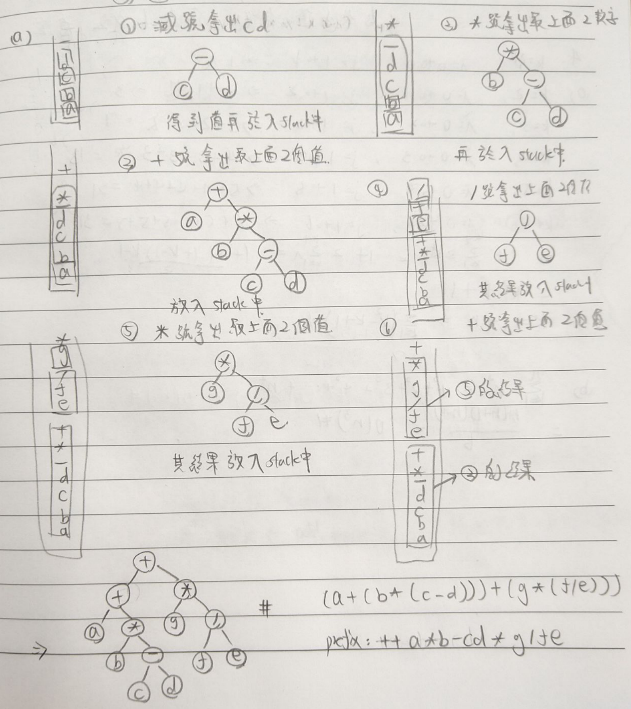 (a)
① 減號拿出cd
-
d
c
b
a
-
c d
得到值再放入stack中
② *號拿出最上面2數字
*
-
d
c
b
a
*
b -
c d
再放入stack中
③ +號拿出最上面2個值
+
*
-
d
c
b
a
+
a *
b -
c d
放入stack中
④ /號拿出上面2個值
/
f
e
+
*
-
d
c
b
a
/
f e
其結果放入stack中
⑤ *號拿出最上面2個值
*
g
/
f
e
+
*
-
d
c
b
a
*
g /
f e
其結果放入stack中
⑥ +號拿出上面2個值
+
*
g
/
f
e
→ ⑤的結果
+
*
-
d
c
b
a
→ ③的結果
⇒
+
+ *
a * g /
b - f e
c d
#
(a+(b*(c-d)))+(g*(f/e)))
prefix: ++a*b-cd*g/fe